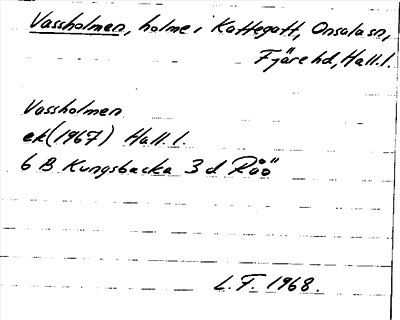 Vassholmen, holme i Kattegatt, Onsala sn,
Fjäre hd, Hall. l.
Vassholmen
ek (1967) Hall. l.
6 B Kungsbacka 3 d Råö
L.F. 1968.